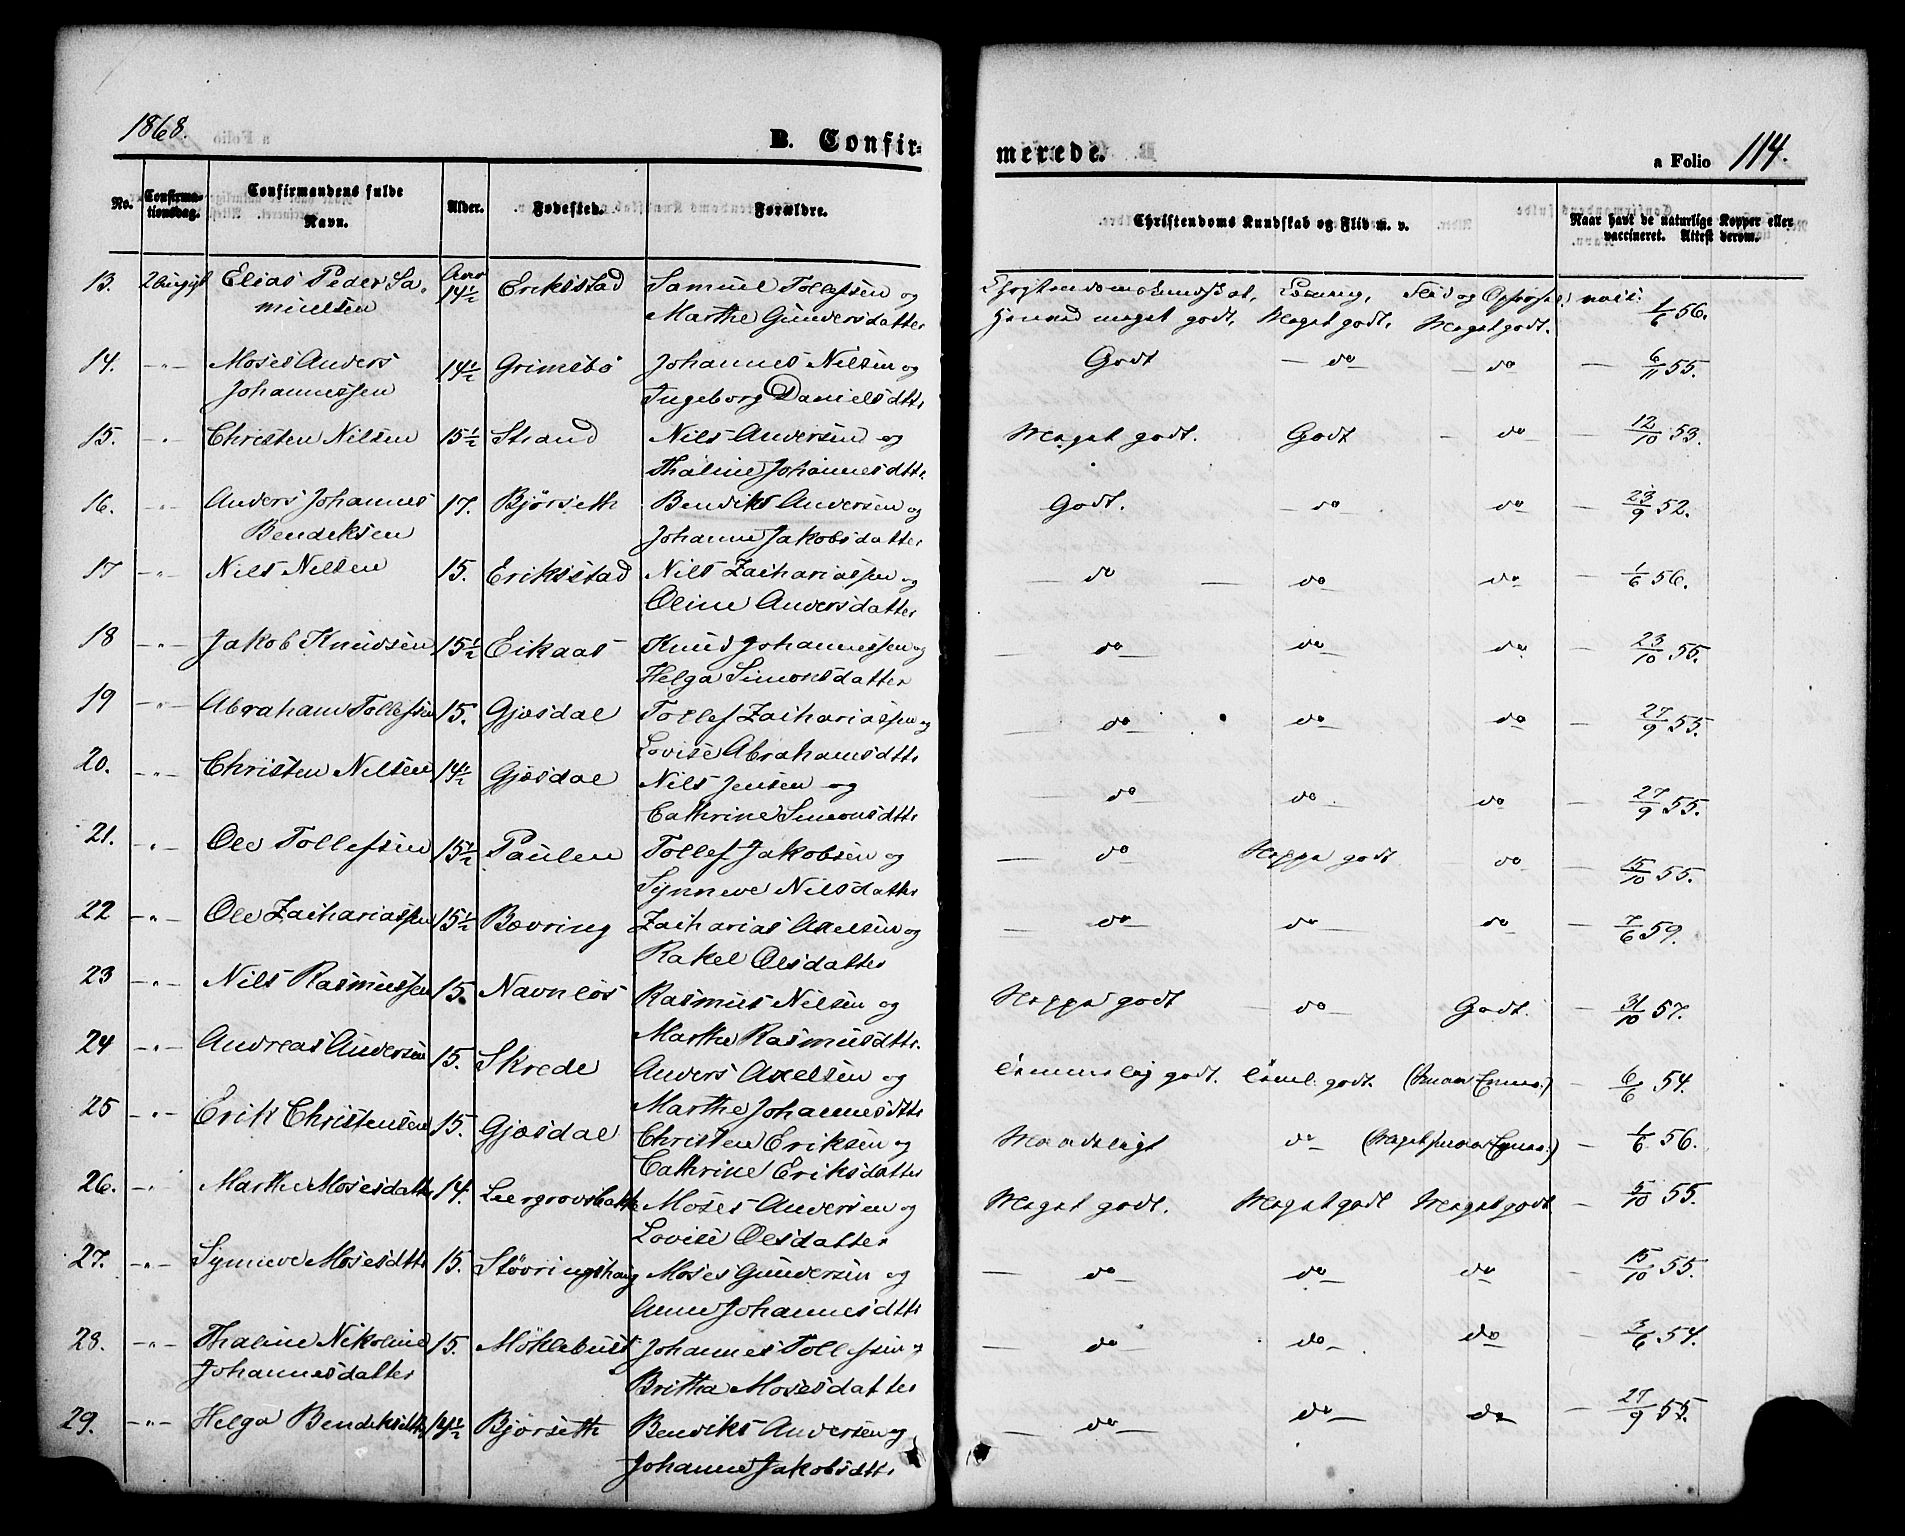 1868.
B. Confirmerede.
a Folio 114.
No. Confirmationsdag. Confirmandens fulde Navn. Alder. Fødested. Forældre. Christendoms Kundskab og Flid m. v. Naar havt de naturlige Kopper eller vaccineret. Attest derom.
13. Elias Peder Sa- Aar 14½ Eriksstad Samuel Tollefsen og Christendomskundskab, Flid og 1/6 56.
muelsen Marthe Gundersdatter meget godt, Meget godt, Meget godt.
14. -"- Moses Anders 14½ Grimsbø Johannes Nilsen og Godt — do — do — 6/11 55.
Johannessen Ingeborg Danielsdttr
15. -"- Christen Nilsen 15½ Strand Nils Andersen og Meget godt. Godt - do — 12/10 53.
Thaline Johannesdttr
16. -"- Anders Johannes 17. Bjørseth Bendiks Andersen og Godt. — do — do — 23/9 52.
Bendiksen Johanne Jakobsdatter
17 -"- Nils Nilsen 15. Eriksstad Nils Zachariassen og — do — do do — 1/6 56.
Oline Andersdatter
18 -"- Jakob Knudsen 15½ Eikaas Knud Johannessen og — do — do — do — 23/10 55.
Helga Simonsdatter
19 -"- Abraham Tollefsen 15. Gjøsdal Tollef Zachariassen og — do — do — do — 27/9 53.
Lovise Abrahamsdttr
20. -"- Christen Nilsen 14½ Gjøsdal Nils Jensen og — do — do do — 27/9 55.
Cathrine Simonsdttr
21. -"- Ole Tollefsen 15½ Paulen Tollef Jakobsen og — do godt - do — 15/10 55.
Synneve Nilsdatter
22 -"- Ole Zachariassen 15½ Bævring Zacharias Axelsen og — do — do — do — 7/6 59.
Rakel Olsdatter
23 -"- Nils Rasmussen 15. Navnløs Rasmus Nilsen og godt — do — Godt. — 31/10 57.
Marthe Rasmusdttr.
24 -"- Andreas Andersen 15. Skrede Anders Axelsen og temmelig godt. teml. godt. — 6/6 54.
Marthe Johannesdttr
25 -"- Erik Christensen 15. Gjøsdal Christen Eriksen og Maadeligt do — 1/6 56.
Cathrine Eriksdatter
26. -"- Marthe Mosesdatter 14. Leergrovsbakke Moses Andersen og Meget godt. Meget godt Meget godt — 5/10 55.
Lovise Olsdatter
27. -"- Synneve Mosesdttr 15. Støvringshaug Moses Gundersen og — do — do — do — 15/10 55.
Anne Johannesdttr
28. -"- Thaline Nikoline 15. Møklebust Johannes Tollefsen og — do — do — do — 3/6 54.
Johannesdatter Britha Mosesdatter
29. -"- Helga Bendiksdttr 14½ Bjørseth Bendiks Andersen og — do — do — do — 27/9 55.
Johanne Jakobsdttr